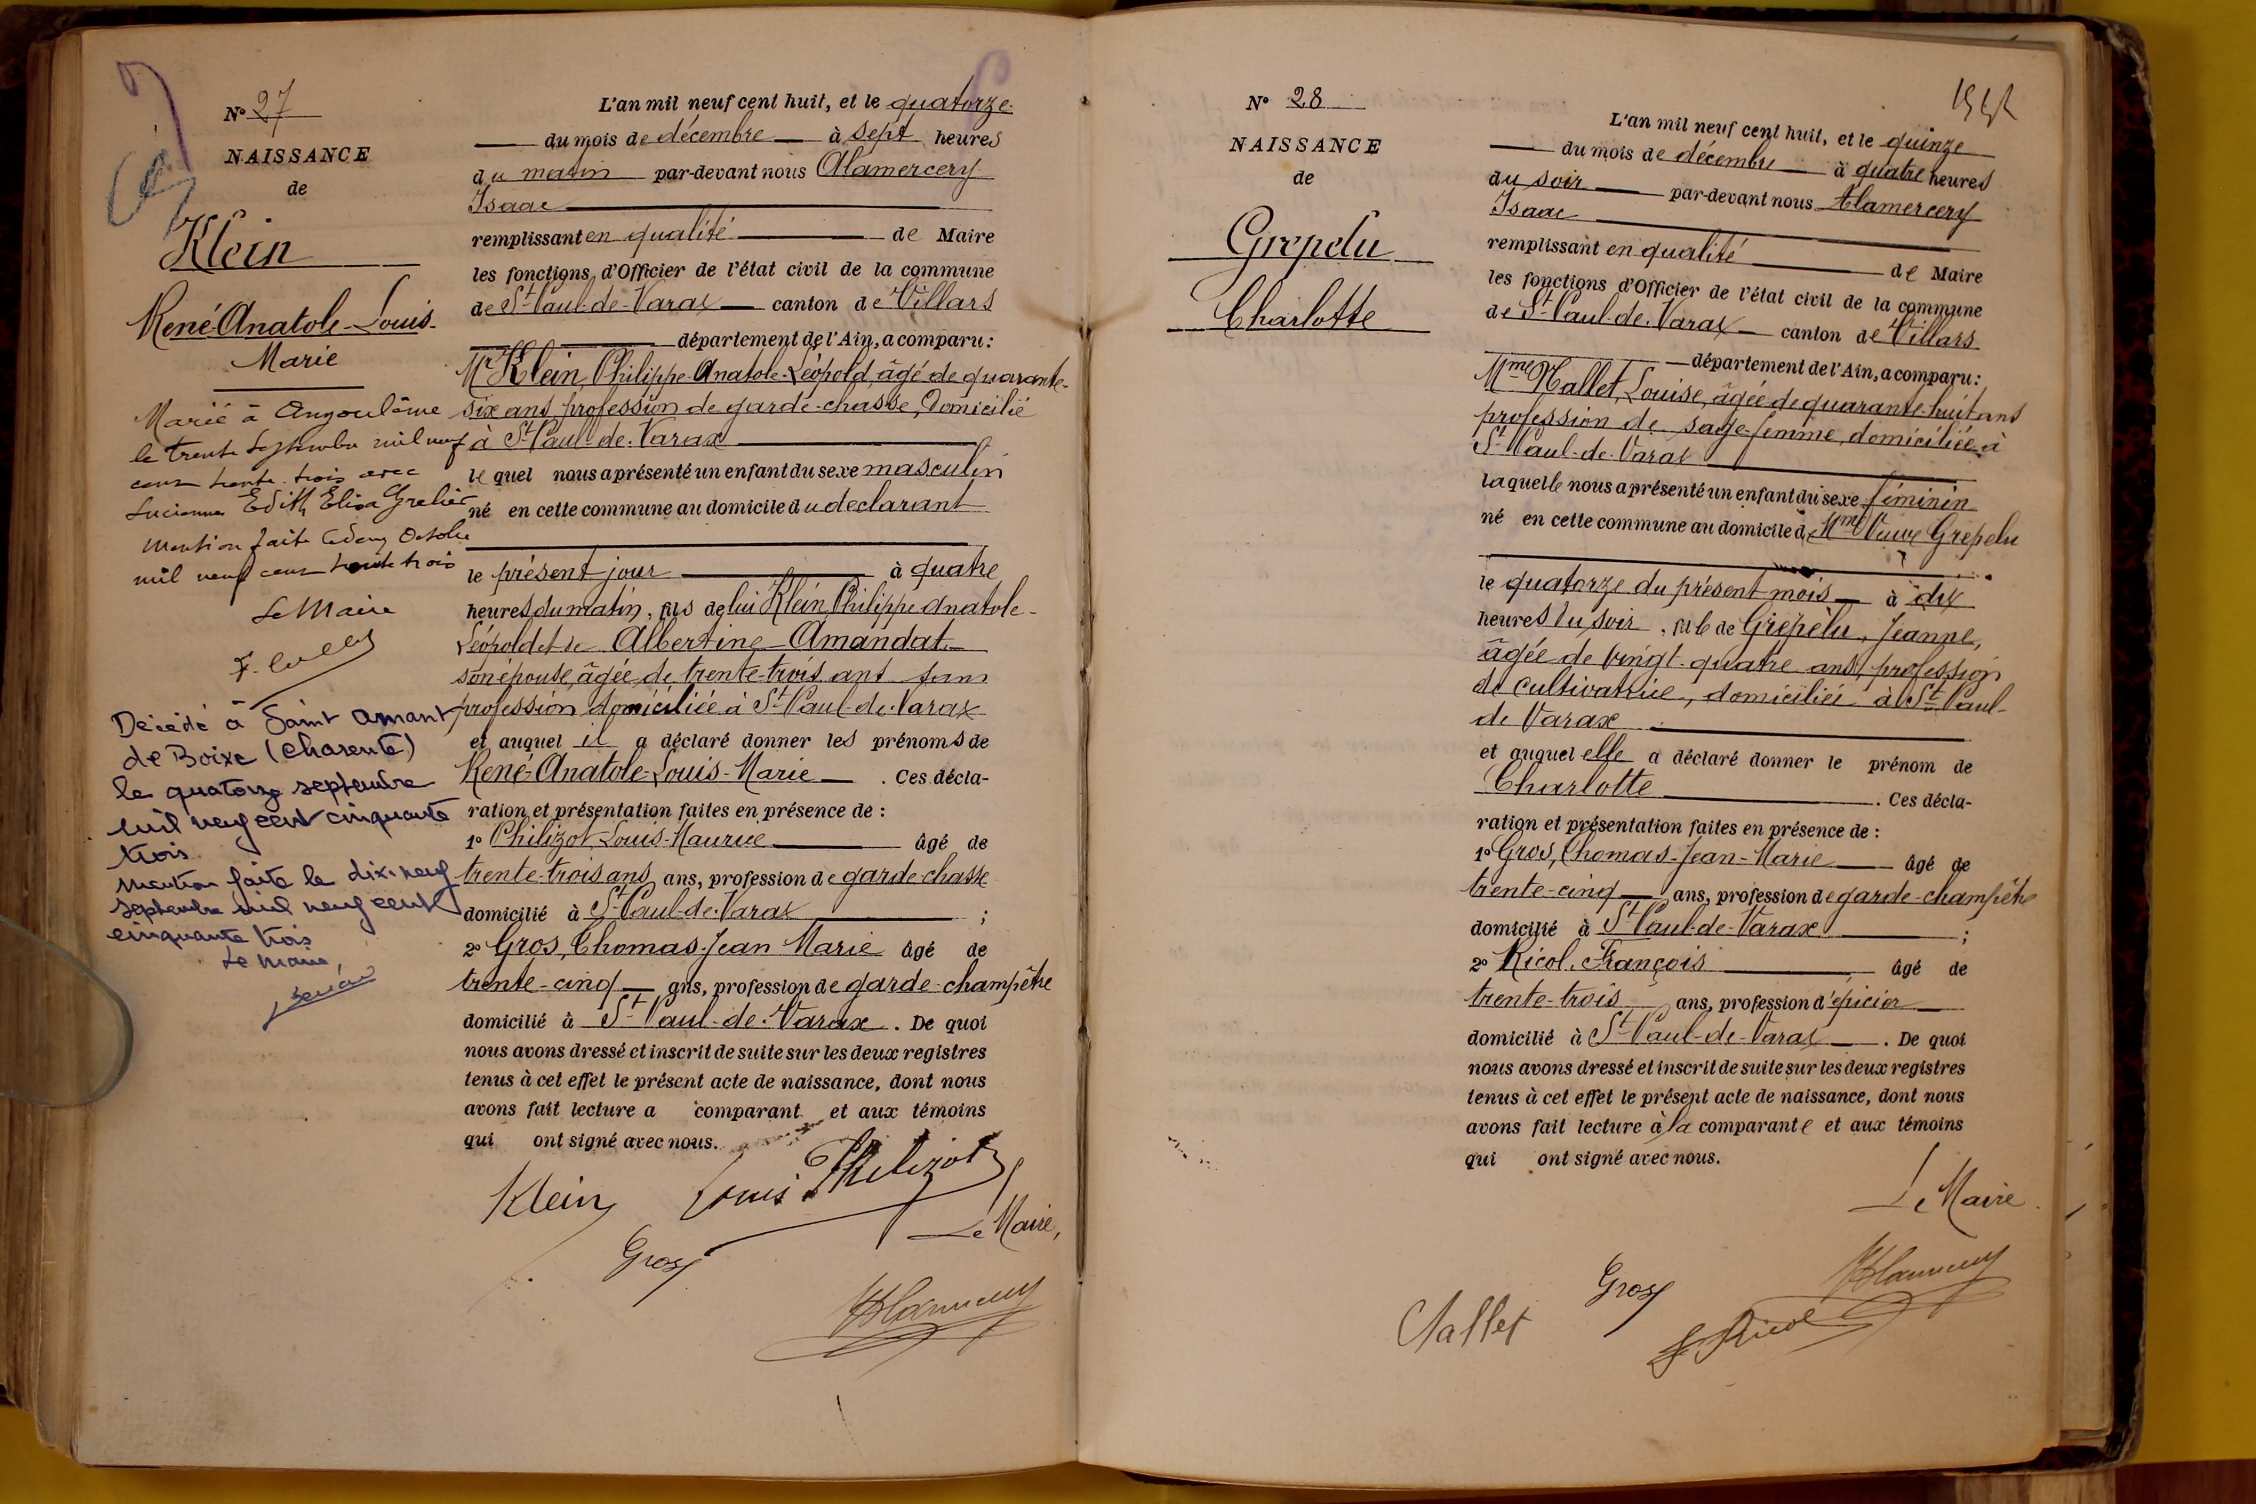 N° 27
NAISSANCE
de
Klein
René-Anatole-Louis-
Marie
Marié à Angoulême
le trente Septembre mil neuf
cent trente-trois avec
Lucienne Edith Elisa Grelier
Mention faite le deux Octobre
mil neuf cent trente trois
Le Maire
Décédé à Saint Amant
de Boixe (Charente)
le quatorze septembre
mil neuf cent cinquante
trois
Mention faite le dix-neuf
septembre mil neuf cent
cinquante trois
Le Maire,
L'an mil neuf cent huit, et le quatorze
du mois de décembre à sept heures
du matin par-devant nous Alamercery
Isaac
remplissant en qualité de Maire
les fonctions d'Officier de l'état civil de la commune
de St-Paul-de-Varax canton de Villars
département de l'Ain, a comparu :
Mr Klein, Philippe-Anatole-Léopold, âgé de quarante-
six ans, profession de garde-chasse, domicilié
à St-Paul-de-Varax
lequel nous a présenté un enfant du sexe masculin
né en cette commune au domicile du declarant
le présent jour à quatre
heures du matin, fils de lui Klein, Philippe Anatole-
Léopold et de Albertine Amandat
son épouse, âgée de trente-trois ans sans
profession domiciliée à St-Paul-de-Varax
et auquel il a déclaré donner les prénoms de
René-Anatole-Louis-Marie . Ces décla-
ration et présentation faites en présence de :
1° Philizot, Louis-Maurice âgé de
trente-trois ans ans, profession de garde-chasse
domicilié à St-Paul-de-Varax ;
2° Gros, Thomas-Jean Marie âgé de
trente-cinq ans, profession de garde-champêtre
domicilié à St-Paul-de-Varax . De quoi
nous avons dressé et inscrit de suite sur les deux registres
tenus à cet effet le présent acte de naissance, dont nous
avons fait lecture a comparant et aux témoins
qui ont signé avec nous.
Klein Louis Philizot
Gros Le Maire,
N° 28
NAISSANCE
de
Grepelu
Charlotte
L'an mil neuf cent huit, et le quinze
du mois de décembre à quatre heures
du soir par-devant nous Alamercery
Isaac
remplissant en qualité de Maire
les fonctions d'Officier de l'état civil de la commune
de St-Paul-de-Varax canton de Villars
département de l'Ain, a comparu :
Mme Nallet, Louise, âgée de quarante-huit ans
profession de sage-femme, domiciliée à
St-Paul-de-Varax
laquelle nous a présenté un enfant du sexe féminin
né en cette commune au domicile de Mme Veuve Grepelu
le quatorze du présent mois à dix
heures du soir, fille de Grepelu, Jeanne,
âgée de vingt-quatre ans, profession
de cultivatrice, domiciliée à St-Paul-
de Varax
et auquel elle a déclaré donner le prénom de
Charlotte . Ces décla-
ration et présentation faites en présence de :
1° Gros, Thomas-Jean-Marie âgé de
trente-cinq ans, profession de garde-champêtre
domicilié à St-Paul-de-Varax ;
2° Ricol, François âgé de
trente-trois ans, profession d'épicier
domicilié à St-Paul-de-Varax . De quoi
nous avons dressé et inscrit de suite sur les deux registres
tenus à cet effet le présent acte de naissance, dont nous
avons fait lecture à la comparante et aux témoins
qui ont signé avec nous.
Le Maire
Nallet Gros F Ricol